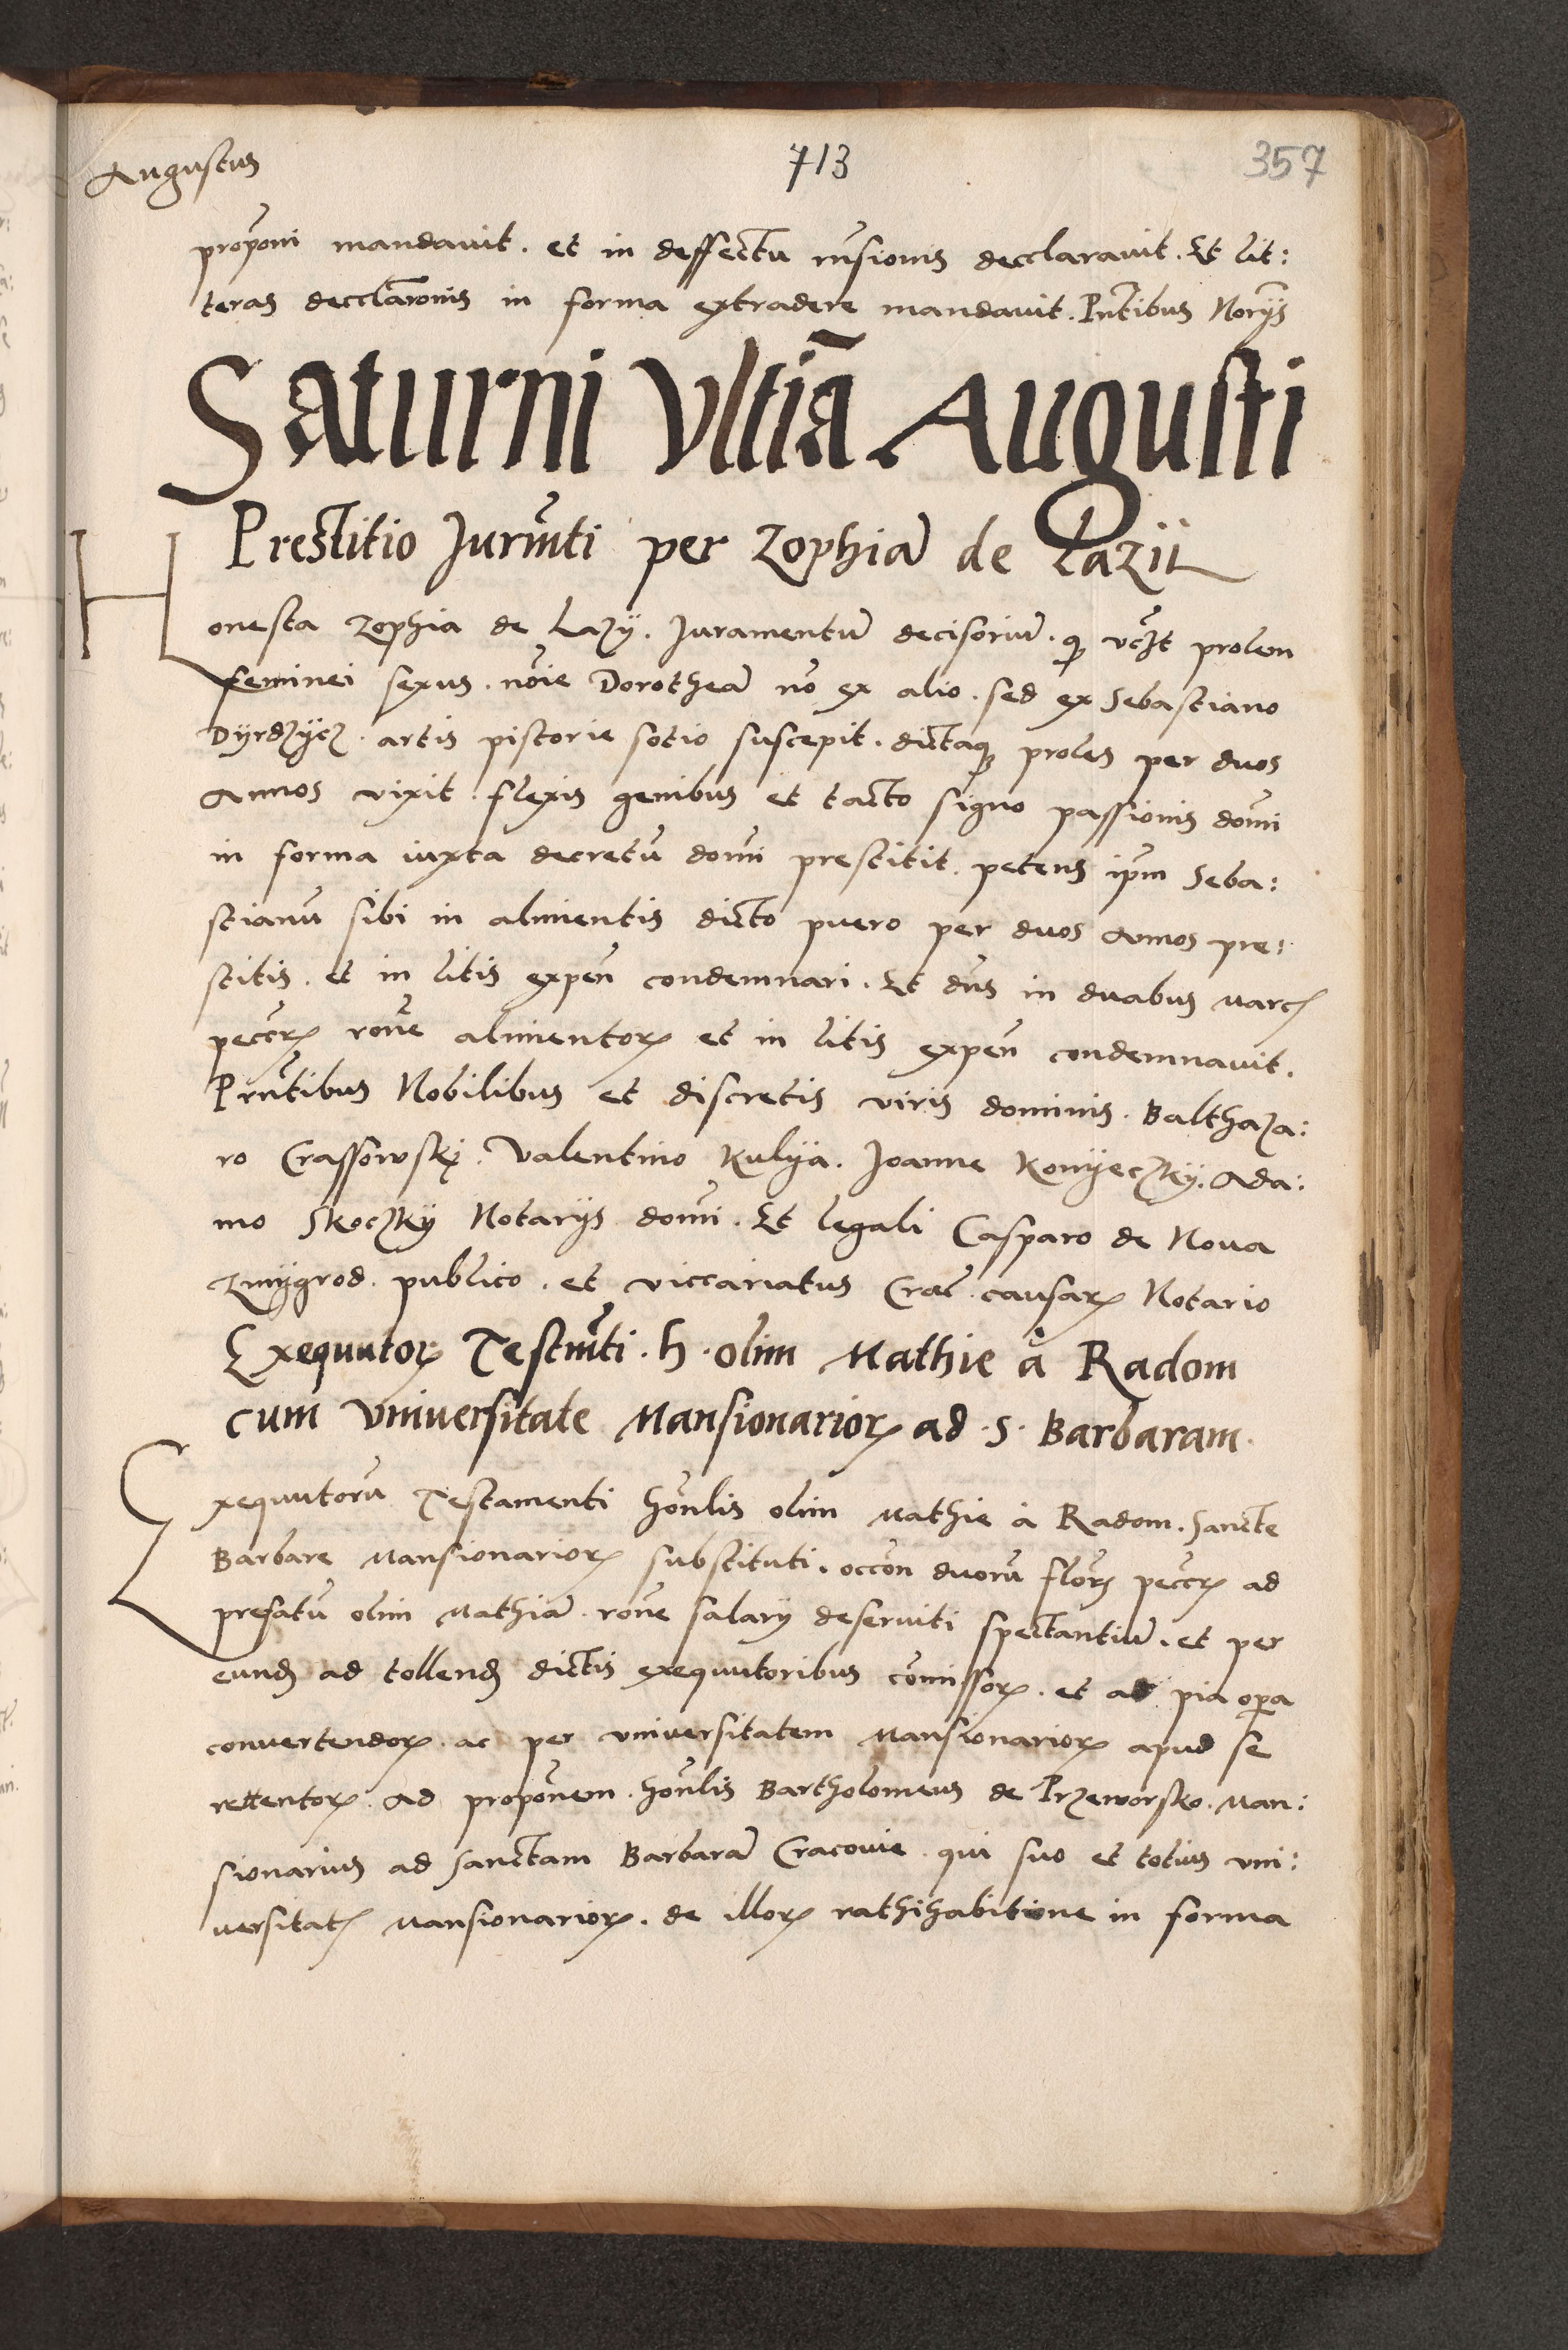 Augustus
713
357
propõni mandavit. et in deffectu rñsionis decclaravit. Et lit:
teras decclarõnis in forma extradere mandavit. Pñtibus Norijs
Saturni Vltiã Augusti
Prestitio Jurmẽti per Zophiã de Lazij
Honesta Zophia de Lazÿ. Juramentũ decisoriũ. qƺ vt̃ prolem
feminei sexus. nõie Dorotheã nõ ex alio. sed ex Sebastiano
Dÿrdzÿcz. artis pistorie sotio suscepit. dictaqƺ proles per duos
Annos vixit. flexis genibus et tacto signo passionis domĩ
in forma iuxta decretũ domĩ prestitit. petens ip̃m Seba:
stianũ sibi in alimentis dicto puero per duos Annos pre:
stitis. et in litis expeñ condemnari. Et dñs in duabus marcꝭ
peccꝝ rõne alimentoꝝ et in litis expeñ condemnavit.
Prñtibus Nobilibus et discretis viris dominis. Balthaza:
ro Crassowskÿ. Valentino Kulÿa. Joanne Konÿeczkÿ. Ada:
mo Skoczkÿ Notarijs domĩ. Et legali Casparo de Nova
Zmÿgrod. publico. et viccariatus Crac̃. causaꝝ Notario
Exequutoꝝ Testmẽti. h. olim Mathie à Radom
cum Vniversitate Mansionarioꝝ ad. S. Barbaram.
Exequutorũ Testamenti hoñlis olim Mathie à Radom. Sancte
Barbare Mansionarioꝝ substituti. occõn duorũ floꝝ peccꝝ ad
prefatũ olim Mathiã. rõne salarij deserviti spectantiũ. et per
eundꝫ ad tollendꝫ dictis exequutoribus cõmissoꝝ. et ad pia oꝑa
convertendoꝝ. ac per vniversitatem Mansionarioꝝ apud se
rettentoꝝ. Ad propõnem. hoñlis Bartholomeus de Przeworsko. Man:
sionarius ad Sanctam Barbarã Cracovie. qui suo et totius vni:
versitatꝭ Mansionarioꝝ. de illoꝝ rathihabitione in forma